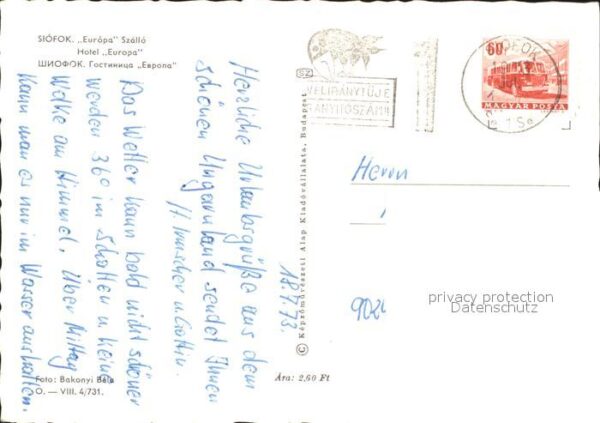 SIÓFOK. „Európa" Szálló
Hotel „Europa"
ШИОФОК. Гостиница „Европа"
Herzliche Urlaubsgrüße aus dem
schönen Ungarnland sendet Ihnen
u. Gattin.
Das Wetter kann bald nicht schöner
werden 36° im Schatten u. keine
Wolke am Himmel, über Mittag
kann man es nur im Wasser aushalten.
18.7.73.
Foto: Bakonyi Béla
O. — VIII. 4/731.
Ára: 2,60 Ft
© Képzőművészeti Alap Kiadóvállalata, Budapest
SZ
VÉLIRÁNYTŰJE
IRÁNYÍTÓSZÁM!
60f
MAGYAR POSTA
Herrn
902
privacy protection
Datenschutz